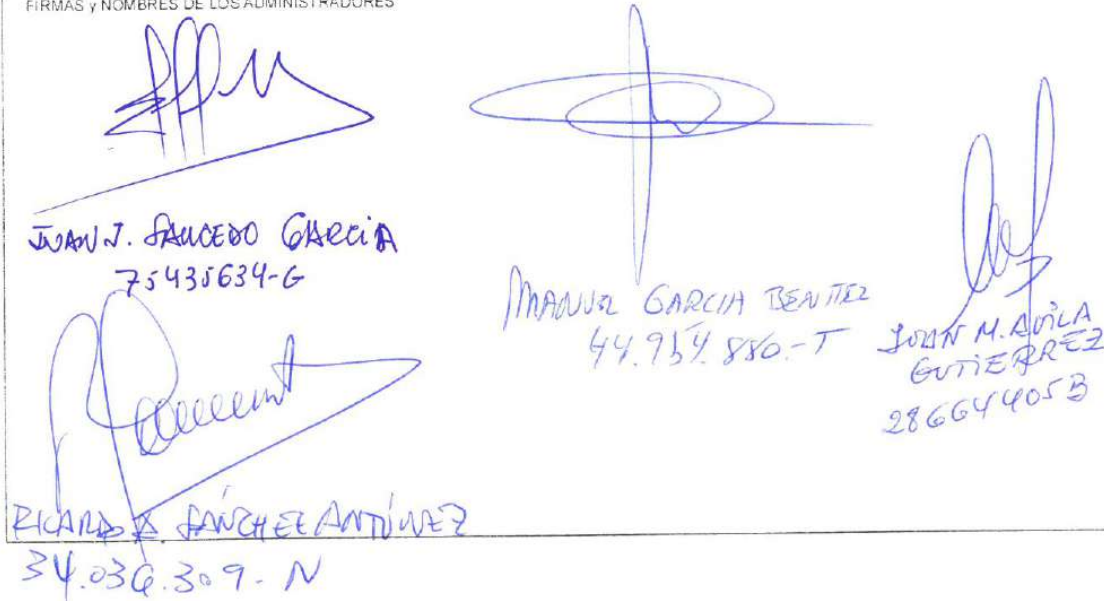 FIRMAS y NOMBRES DE LOS ADMINISTRADORES
JUAN J. SAUCEDO GARCÍA
75435634-G
MANUEL GARCIA BENITEZ
44.954.880.-T
JUAN M. AVILA
GUTIERREZ
28664405B
RICARDO SÁNCHEZ ANTÚNEZ
34.036.309.-N